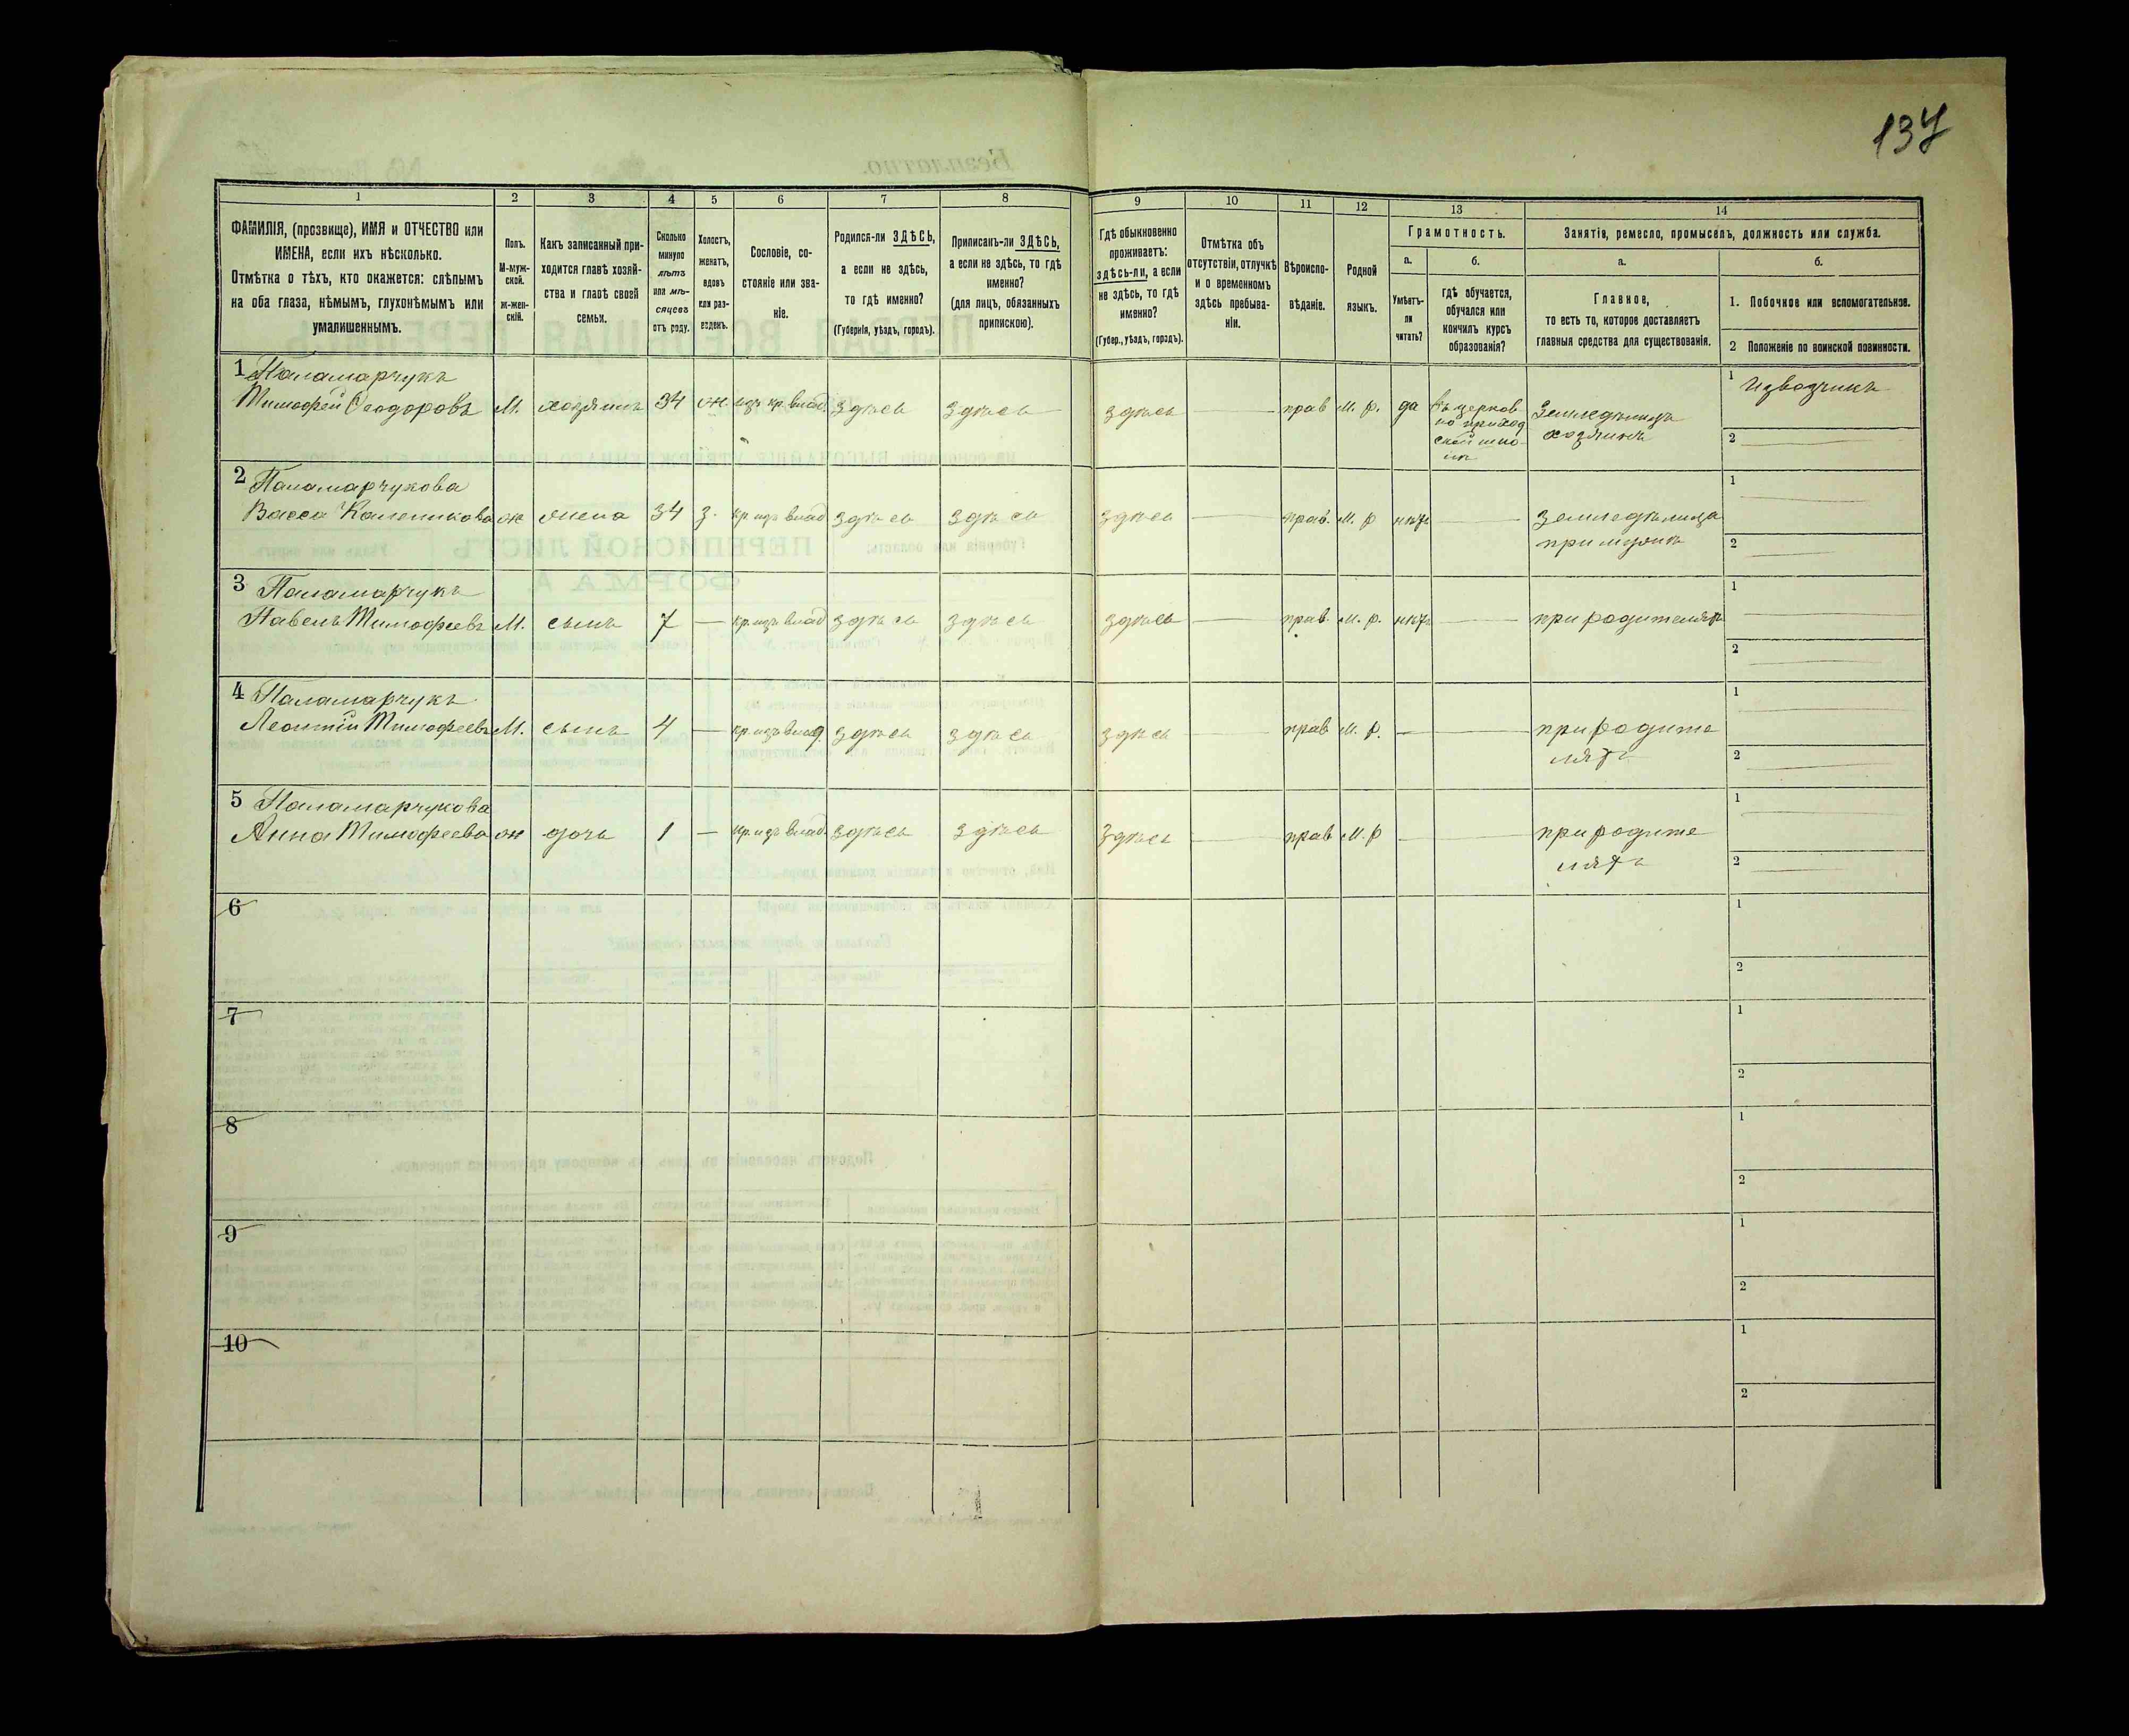 137
1 2 3 4 5 6 7 8 9 10 11 12 13 14
ФАМИЛІЯ, (прозвище), ИМЯ и ОТЧЕСТВО или
ИМЕНА, если ихъ нѣсколько.
Отмѣтка о тѣхъ, кто окажется: слѣпымъ
на оба глаза, нѣмымъ, глухонѣмымъ или
умалишеннымъ.
Полъ.
М-муж-
ской.
ж-жен-
скій.
Какъ записанный при-
ходится главѣ хозяй-
ства и главѣ своей
семьи.
Сколько
минуло
лѣтъ
или мѣ-
сяцевъ
отъ роду.
Холостъ,
женатъ,
вдовъ
или раз-
веденъ.
Сословіе, со-
стояніе или зва-
ніе.
Родился-ли ЗДѢСЬ,
а если не здѣсь,
то гдѣ именно?
(Губернія, уѣздъ, городъ).
Приписанъ-ли ЗДѢСЬ,
а если не здѣсь, то гдѣ
именно?
(для лицъ, обязанныхъ
припискою).
Гдѣ обыкновенно
проживаетъ:
здѣсь-ли, а если
не здѣсь, то гдѣ
именно?
(Губер., уѣздъ, городъ).
Отмѣтка объ
отсутствіи, отлучкѣ
и о временномъ
здѣсь пребыва-
ніи.
Вѣроиспо-
вѣданіе.
Родной
языкъ.
Грамотность.
а.
Умѣетъ-
ли
читать?
б.
гдѣ обучается,
обучался или
кончилъ курсъ
образованія?
Занятія, ремесло, промыселъ, должность или служба.
а.
Главное,
то есть то, которое доставляетъ
главныя средства для существованія.
б.
1. Побочное или вспомогательное.
2 Положеніе по воинской повинности.
1 Паламарчукъ
Тимофей Ѳеодоровъ М. хозяинъ 34 ж. изъ кр. влад. здѣсь здѣсь здѣсь — прав М. р. да
въ церков
но приход
ской шко
лѣ
Земледѣлецъ
хозяинъ
1 Извозчикъ
2
2 Паламарчукова
Васса Каленикова ж жена 34 з. кр изъ влад здѣсь здѣсь здѣсь — прав. М. р нѣтъ —
земледѣлица
при мужѣ
1
2
3 Паламарчукъ
Павелъ Тимофеевъ М. сынъ 7 — кр. изъ влад здѣсь здѣсь здѣсь — прав. М. р. нѣтъ — при родителяхъ
1
2
4 Паламарчукъ
Леонтій Тимофеевъ М. сынъ 4 — кр изъ влад. здѣсь здѣсь здѣсь — прав М. р. — при родите
ляхъ
1
2
5 Паламарчукова
Анна Тимофеева ж дочь 1 — кр изъ влад. здѣсь здѣсь здѣсь — прав М. р — при родите
ляхъ
1
2
6
1
2
7
1
2
8
1
2
9
1
2
10
1
2